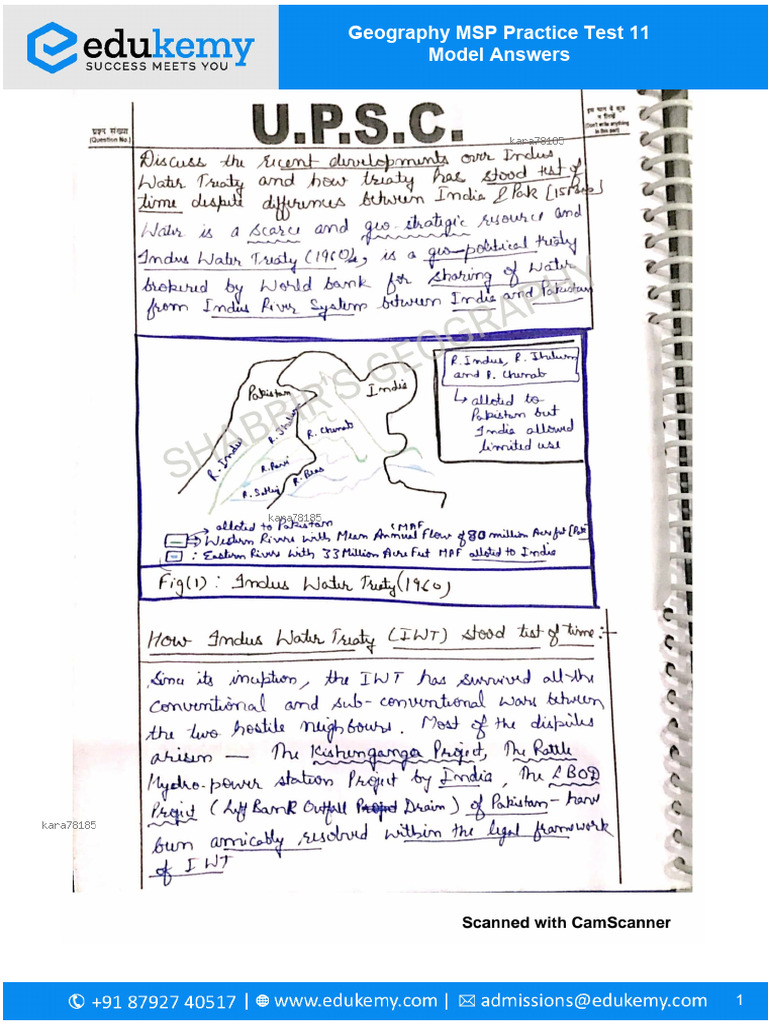 edukemy
SUCCESS MEETS YOU
Geography MSP Practice Test 11
Model Answers
प्रश्न संख्या
(Question No.)
U.P.S.C.
इस भाग में कुछ
न लिखें
(Don't write anything
in this part)
kara78185
Discuss the recent developments over Indus
Water Treaty and how treaty has stood test of
time despite differences between India & Pak
Water is a scarce and geo-strategic resource and
Indus Water Treaty (1960), is a geo-political treaty
brokered by World bank for sharing of Water
from Indus River System between India and Pakistan
SHABBIR'S GEOGRAPHY
Pakistan
India
R. Indus
R. Jhelum
R. Chenab
R. Ravi
R. Satlej
R. Beas
R. Indus, R. Jhelum
and R. Chenab
↳ alloted to
Pakistan but
India allowed
limited use
kara78185
→ alloted to Pakistan
(MAF
→ Western Rivers with Mean Annual Flow of 80 million Acre feet
: Eastern Rivers with 33 Million Acre Feet MAF alloted to India
Fig(1) : Indus Water Treaty (1960)
How Indus Water Treaty (IWT) stood test of time :-
Since its inception, the IWT has survived all the
Conventional and sub-conventional wars between
the two hostile neighbours. Most of the disputes
arisen — The Kishenganga Project, The Rattle
Hydro-power station Project by India, The LBOD
Project (Left Bank Outfall Drain) of Pakistan - have
been amicably resolved within the legal framework
of IWT
kara78185
Scanned with CamScanner
+91 87927 40517 | www.edukemy.com | admissions@edukemy.com
1